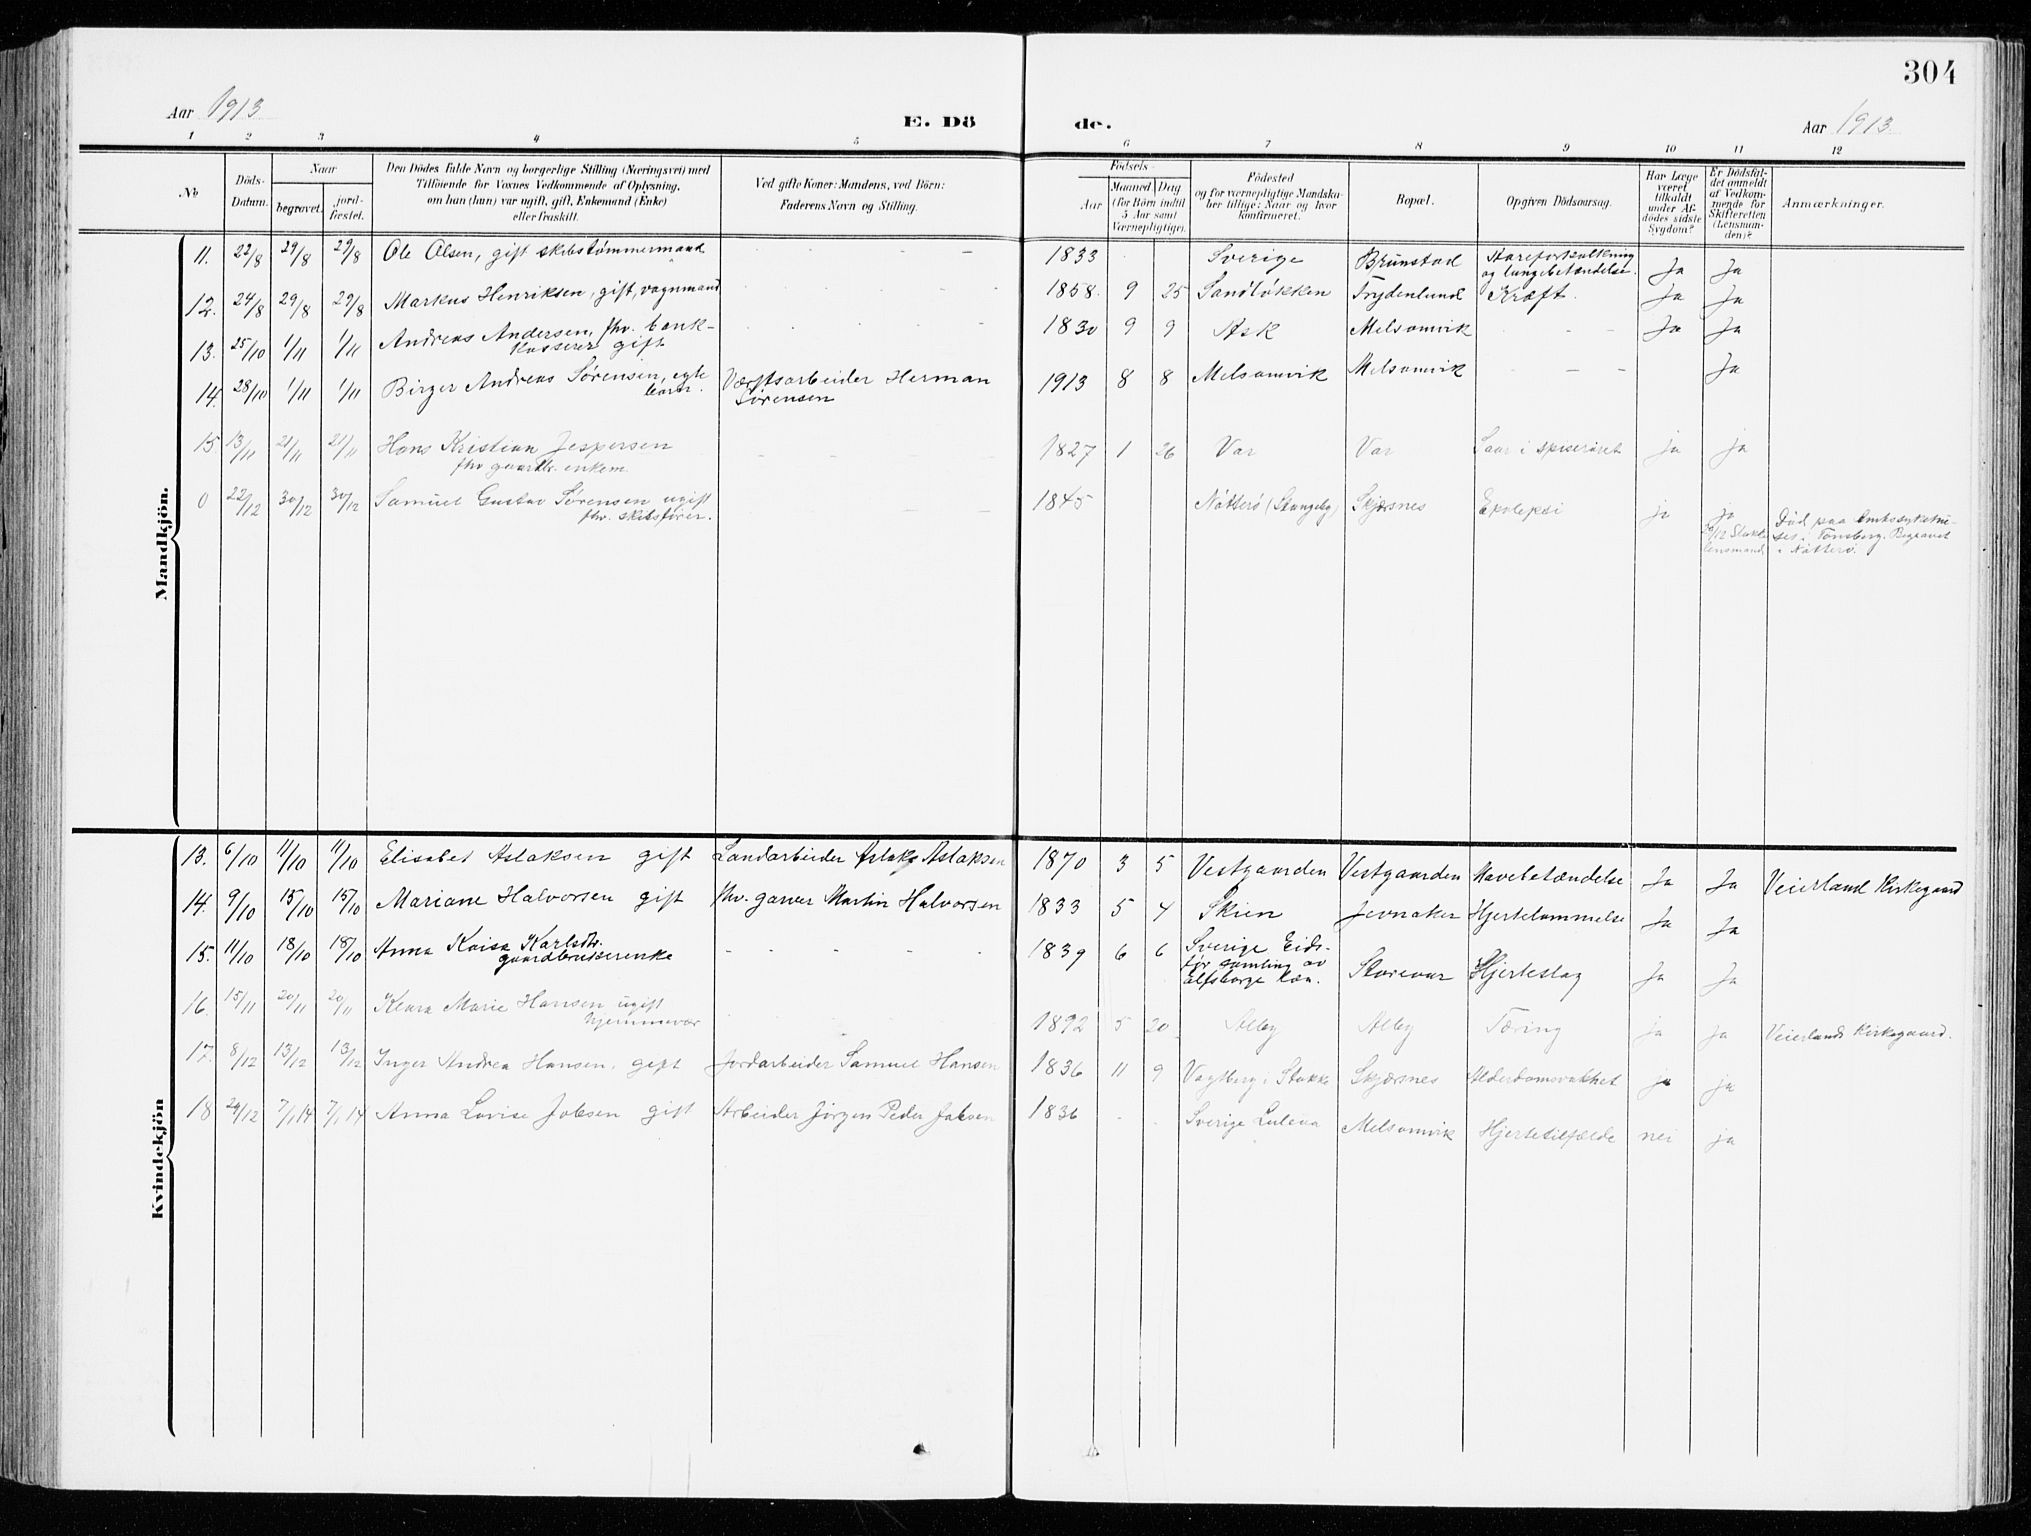 304
Aar 1913
E. Dö
de.
Aar 1913
1 2 3 4 5 6 7 8 9 10 11 12
No
Döds-
Datum.
Naar
begravet.
jord-
fæstet.
Den Dödes fulde Navn og borgerlige Stilling (Næringsvei) med
Tilföiende for Voxnes Vedkommende af Oplysning,
om han (hun) var ugift, gift, Enkemand (Enke)
eller fraskilt.
Ved gifte Koner: Mandens, ved Börn:
Faderens Navn og Stilling.
Födsels
Aar
Maaned Dag
(for Börn indtil
5 Aar samt
Værnepligtige).
Födested
og for værnepligtige Mandska-
ber tillige: Naar og hvor
konfirmeret.
Bopæl.
Opgiven Dödsaarsag.
Har Læge
været
tilkaldt
under Af-
dödes sidste
Sygdom?
Er Dödsfal-
det anmeldt
af Vedkom-
mende for
Skifteretten
(Lensman-
den)?
Anmærkninger.
Mandkjön.
11. 22/8 29/8 29/8 Ole Olsen, gift skibstømmermand 1833 Sverige Brunstad Aareforkalkning
og lungebetændelse. Ja Ja
12. 24/8 29/8 29/8 Markus Henriksen, gift, vognmand 1858. 9 25 Sandløkken Frydenlund Kræft. Ja Ja
13. 25/10 1/11 1/11 Andreas Andersen, fhv. bank-
kasserer gift 1830 9 9 Ask Melsomvik - - Ja Ja
14. 28/10 1/11 1/11 Birger Andreas Sørensen, egte
barn. Værftsarbeider Herman
Sørensen 1913 8 8 Melsomvik Melsomvik - - - Ja
15. 13/11 21/11 21/11 Hans Kristian Jespersen
fhv gaardbr. enkem. 1827 1 26 Var Var Saar i spiserøret ja ja
0 22/12 30/12 30/12 Samuel Gustav Sørensen ugift
fhv. skibsfører. 1845 Nøtterø (Stangeby) Skjærsnes Epilepsi ja ja
lensmand
Død paa Amtssykehu-
set i Tønsberg. Begravet
i Nøtterø.
Kvindekjön
13. 6/10 11/10 11/10 Elisabet Aslaksen gift Landarbeider Aslak Aslaksen 1870 3 5 Vestgaarden Vestgaarden Mavebetændelse Ja Ja Veierland Kirkegaard
14. 9/10 15/10 15/10 Mariane Halvorsen gift fhv. garver Martin Halvorsen 1833 5 4 Skien Jevnaker Hjertelammelse Ja Ja
15. 11/10 18/10 18/10 Anna Kaisa Karlsdtr.
gaardbrukerenke 1839 6 6 Sverige Eids-
før samling av
Elfsborgs län. Storevar Hjerteslag Ja Ja
16. 15/11 20/11 20/11 Klara Marie Hansen ugift
hjemmevær 1892 5 20 Alby Alby Tæring ja ja Veierlands Kirkegaard.
17. 8/12 13/12 13/12 Inger Andrea Hansen, gift Jordarbeider Samuel Hansen 1836 11 9 Vagtberg i Stokke Skjærsnes Alderdomsvakhet ja ja
18 29/12 7/1 14 7/1 14 Anna Lovise Jobsen gift Arbeider Jørgen Peder Jobsen 1836 - - Sverige Luleaa Melsomvik Hjertetilfælde nei ja